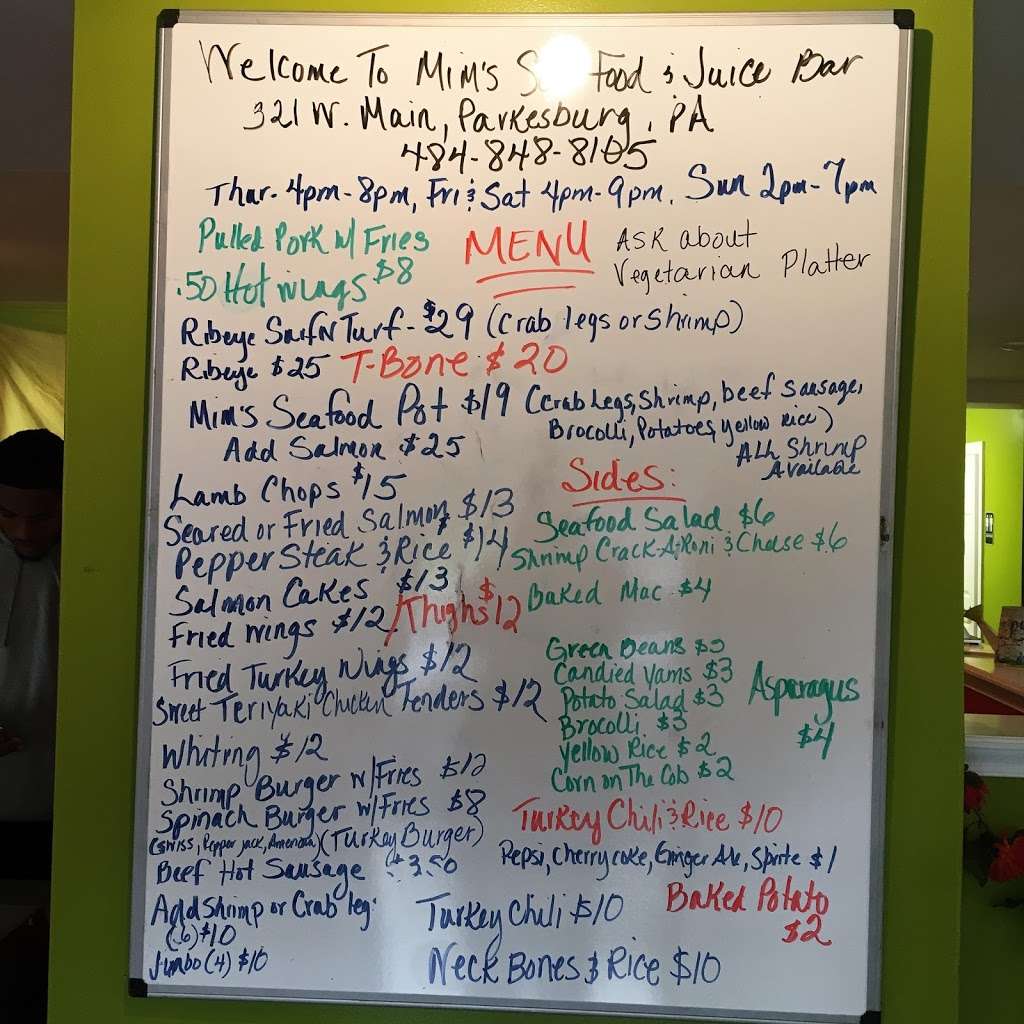 Welcome To Mim's Food & Juice Bar
321 W. Main, Parkesburg, PA
484-848-8105
Thur. 4pm-8pm, Fri & Sat 4pm-9pm, Sun 2pm-7pm
Pulled Pork w/ Fries $8
MENU
Ask about
Vegetarian Platter
.50 Hot wings
Ribeye Surf N Turf - $29 (crab legs or shrimp)
Ribeye $25 T-Bone $20
Mim's Seafood Pot $19 (crab Legs, Shrimp, beef sausage,
Brocolli, Potatoes, yellow rice)
Add Salmon $25
All Shrimp
Available
Lamb Chops $15
Seared or Fried Salmon $13
Pepper Steak & Rice $14
Salmon Cakes $13
Fried wings $12 / Thighs $12
Fried Turkey Wings $12
Sweet Teriyaki Chicken Tenders $12
Whiting $12
Shrimp Burger w/ Fries $12
Spinach Burger w/ Fries $8
(Swiss, Pepper jack, American) (Turkey Burger)
Beef Hot Sausage $3.50
Add Shrimp or Crab leg:
(6) $10
Jumbo (4) $10
Sides:
Seafood Salad $6
Shrimp Crack-A-Roni & Cheese $6
Baked Mac $4
Green Beans $3
Candied Yams $3
Potato Salad $3
Brocolli $3
Yellow Rice $2
Corn on The Cob $2
Asparagus
$4
Turkey Chili & Rice $10
Pepsi, Cherry coke, Ginger Ale, Sprite $1
Baked Potato
$2
Turkey Chili $10
Neck Bones & Rice $10